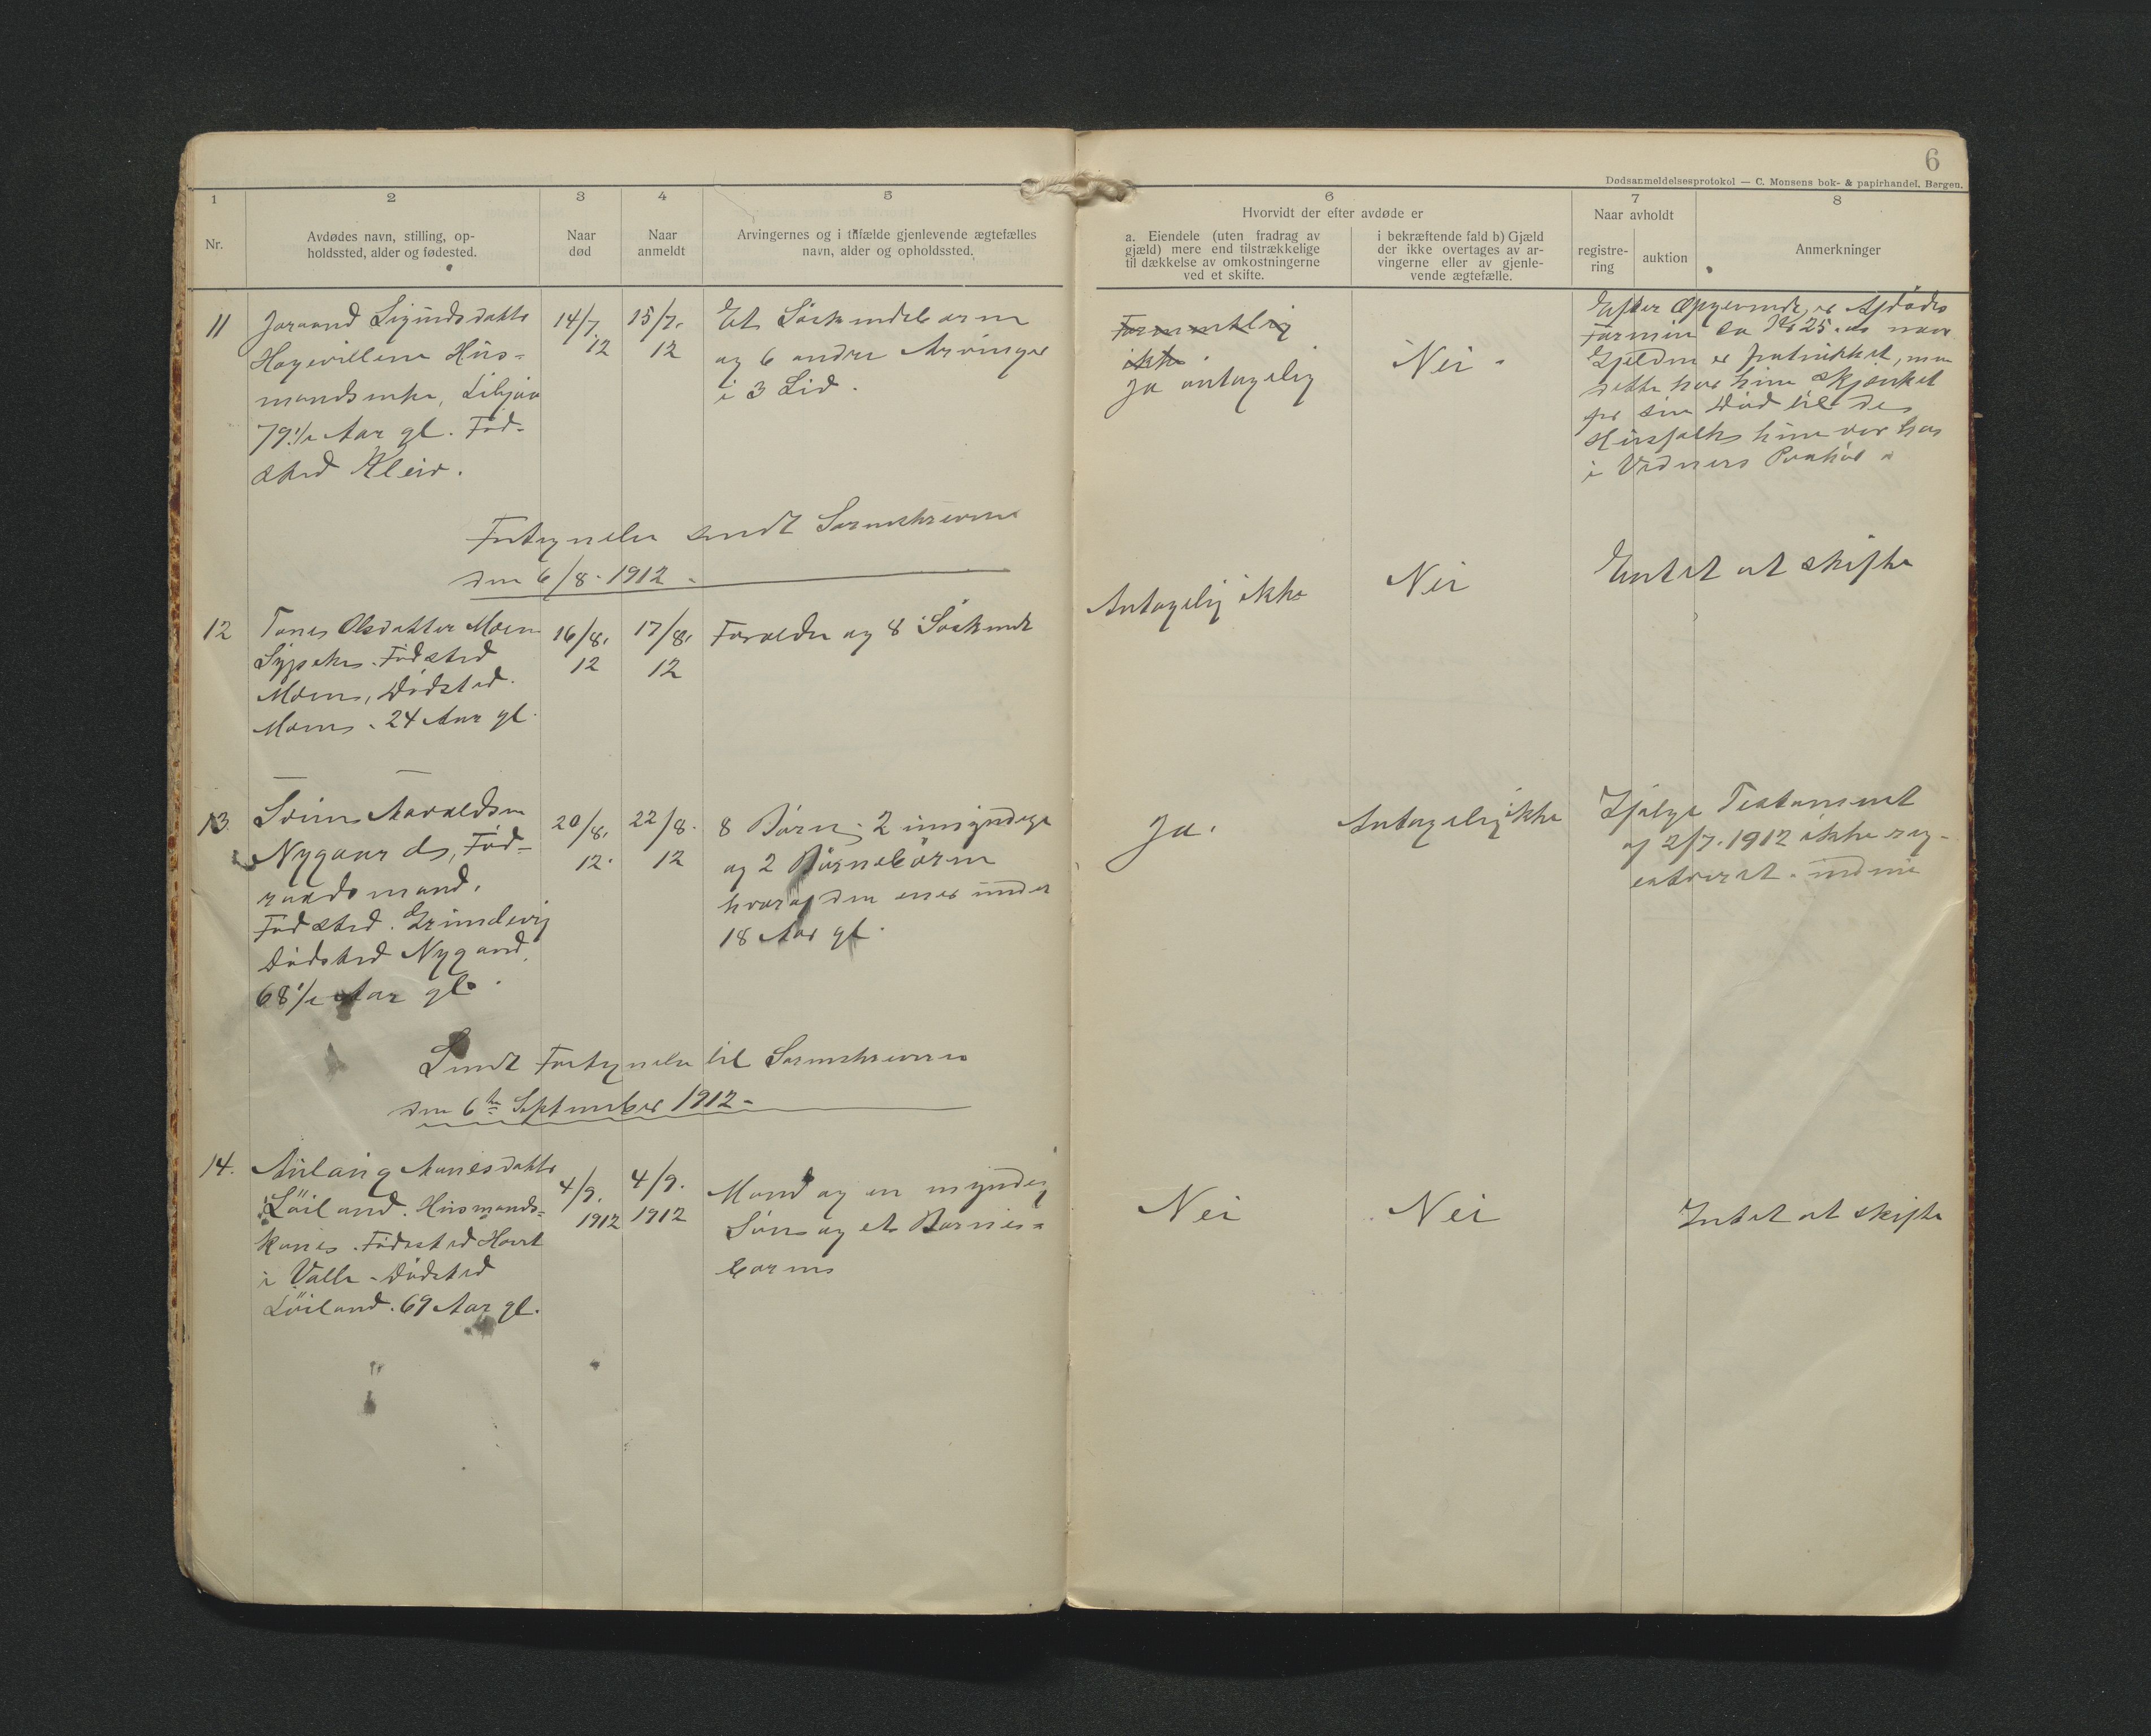 6
Dødsanmeldelsesprotokol — C. Monsens bok- & papirhandel, Bergen.
1
2
3
4
5
6
7
8
Nr.
Avdødes navn, stilling, op-
holdssted, alder og fødested.
Naar
død
Naar
anmeldt
Arvingernes og i tilfælde gjenlevende ægtefælles
navn, alder og opholdssted.
Hvorvidt der efter avdøde er
a. Eiendele (uten fradrag av
gjæld) mere end tilstrækkelige
til dækkelse av omkostningerne
ved et skifte.
i bekræftende fald b) Gjæld
der ikke overtages av ar-
vingerne eller av gjenle-
vende ægtefælle.
Naar avholdt
registre-
ring
auktion
Anmerkninger
11
Joraand Sigurdsdatter
Hus-
79½ Aar gl. Fød-
sted Kleiv.
14/7
12
15/7.
12
Et Søskendebarn
og 6 andre Arvinger
i 3 Lid.
Formentlig
ikke
Ja antagelig
Nei
Efter Opgivende, er Afdødes
Formue ca Kr 25. naar
Gjelden er fratrukket, men
dette har hun skjenket
før sin Død til de
Husfolk hun var hos
i
Fortegnelse sendt Sorenskriveren
den 6/8. 1912.
12
Tone Olsdatter Moen
Fødsted
Moen, Dødsted
Moen. 24 Aar gl.
16/8.
12
17/8.
12
Forældre og 8 Søskende
Antagelig ikke
Nei
Intet at skifte
13
Svein Aavaldsen
Nygaard, Fød-
raadsmand.
Fødsted.
Dødsted Nygaard.
68½ Aar gl.
20/8.
12.
22/8.
12
8 Børn, 2 umyndige
og 2 Børnebørn
hvoraf den ene under
18 Aar gl.
Ja.
Antagelig ikke
Ifølge Testament
af 2/7. 1912 ikke reg-
Sendt Fortegnelse til Sorenskriveren
den 6te September 1912.
14.
Aulaug Aanesdatter
Løiland. Husmands-
kone. Fødested
i Valle. Dødsted
Løiland. 69 Aar gl.
4/9.
1912
4/9.
1912
Mand og en myndig
Søn og et Barne-
barn
Nei
Nei
Intet at skifte